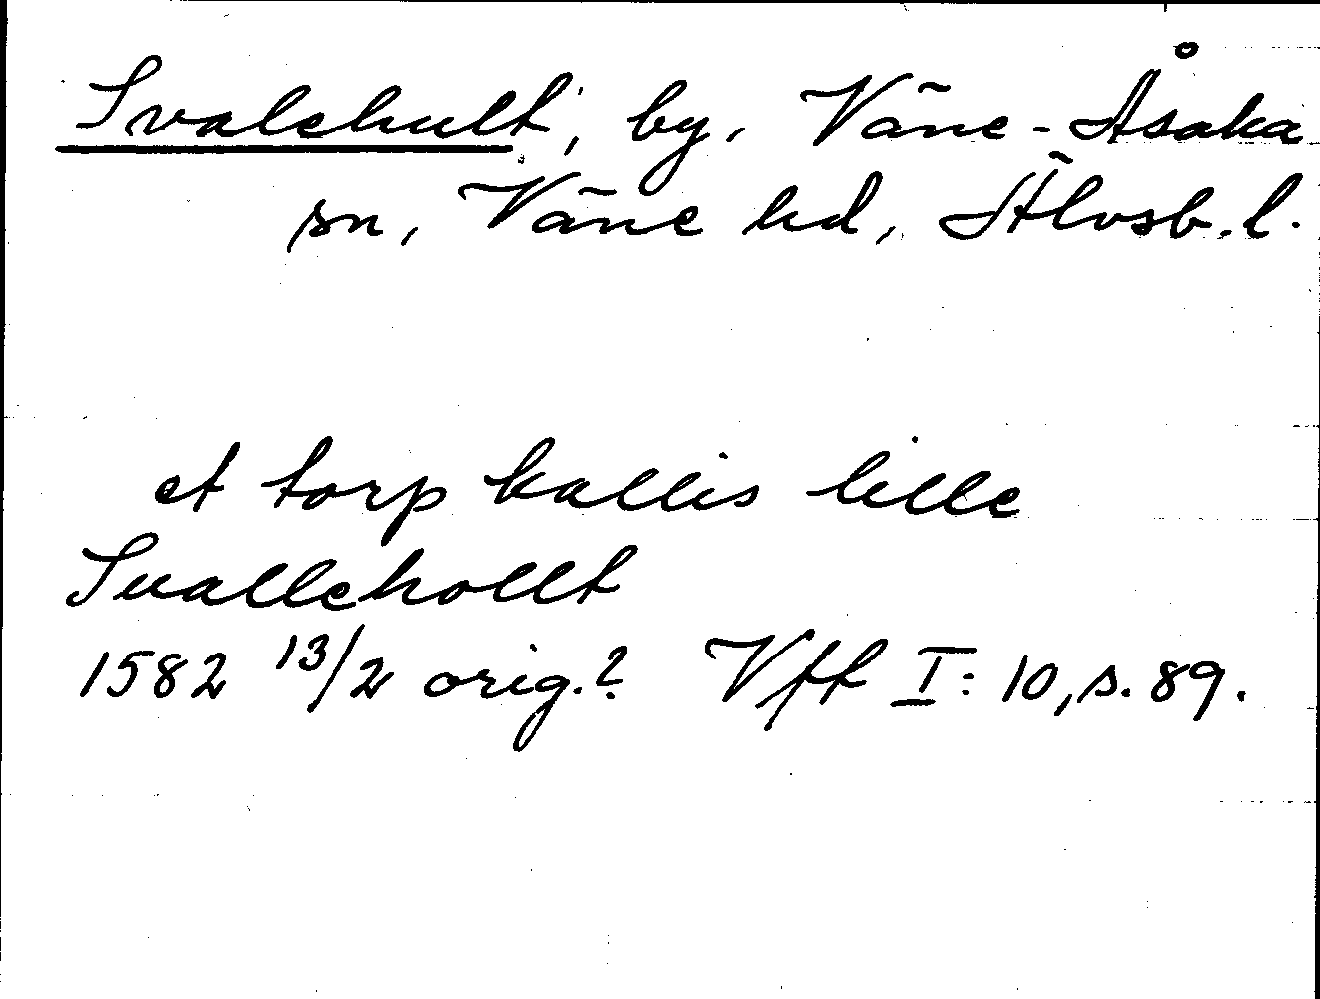 Svalehult, by, Väne-Åsaka
sn, Väne hd, Älvsb. l.
et torp kallis lille
Suallehollt
1582 13/2 orig.? Vft I: 10, s. 89.